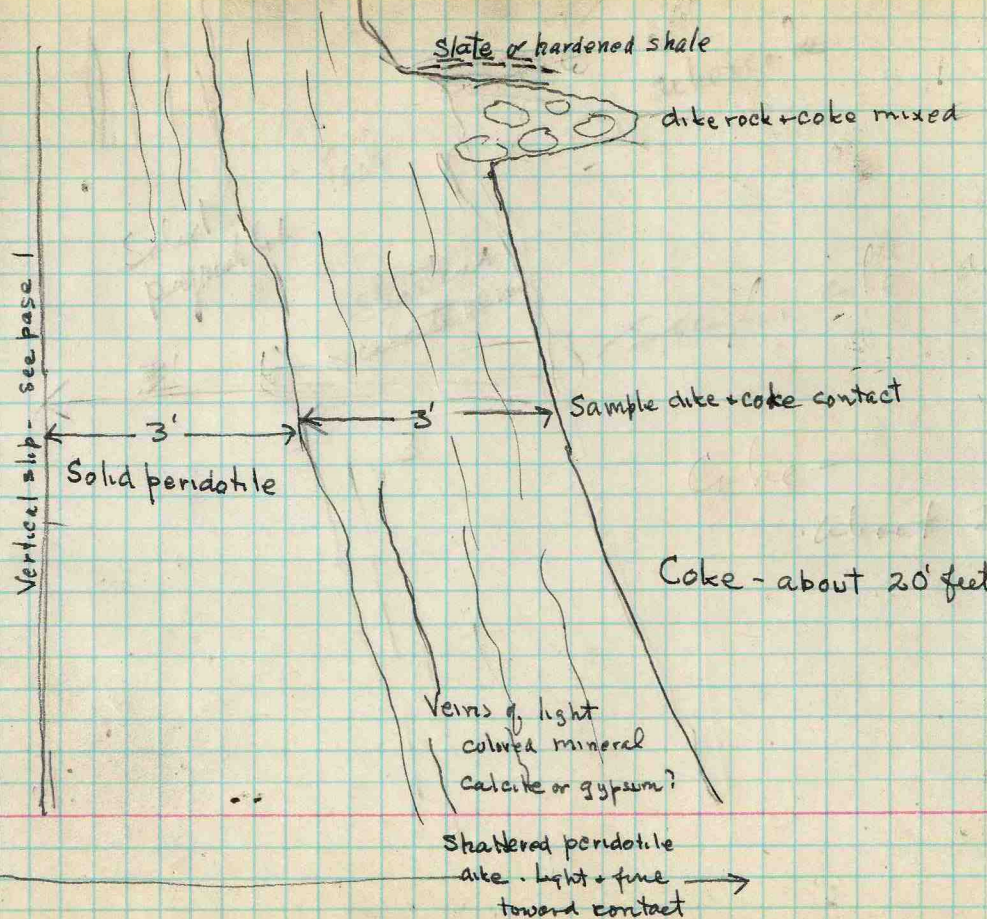 Slate or hardened shale
dike rock + coke mixed
Vertical slip - see page 1
3'
3'
Sample dike + coke contact
Solid peridotite
Coke - about 20' feet
Veins of light
colored mineral
calcite or gypsum?
Shattered peridotite
dike. Light + fine
toward contact